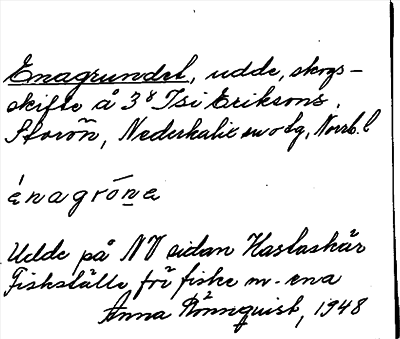 Enagrundet, udde, skogs-
skifte å 3⁸ Isi Eriksons,
Storön, Nederkalix sn o tg, Norrb. l
énagróna
Udde på NV sidan Hastaskär
Fiskställe för fiske m. ena
Anna Rönnquist, 1948